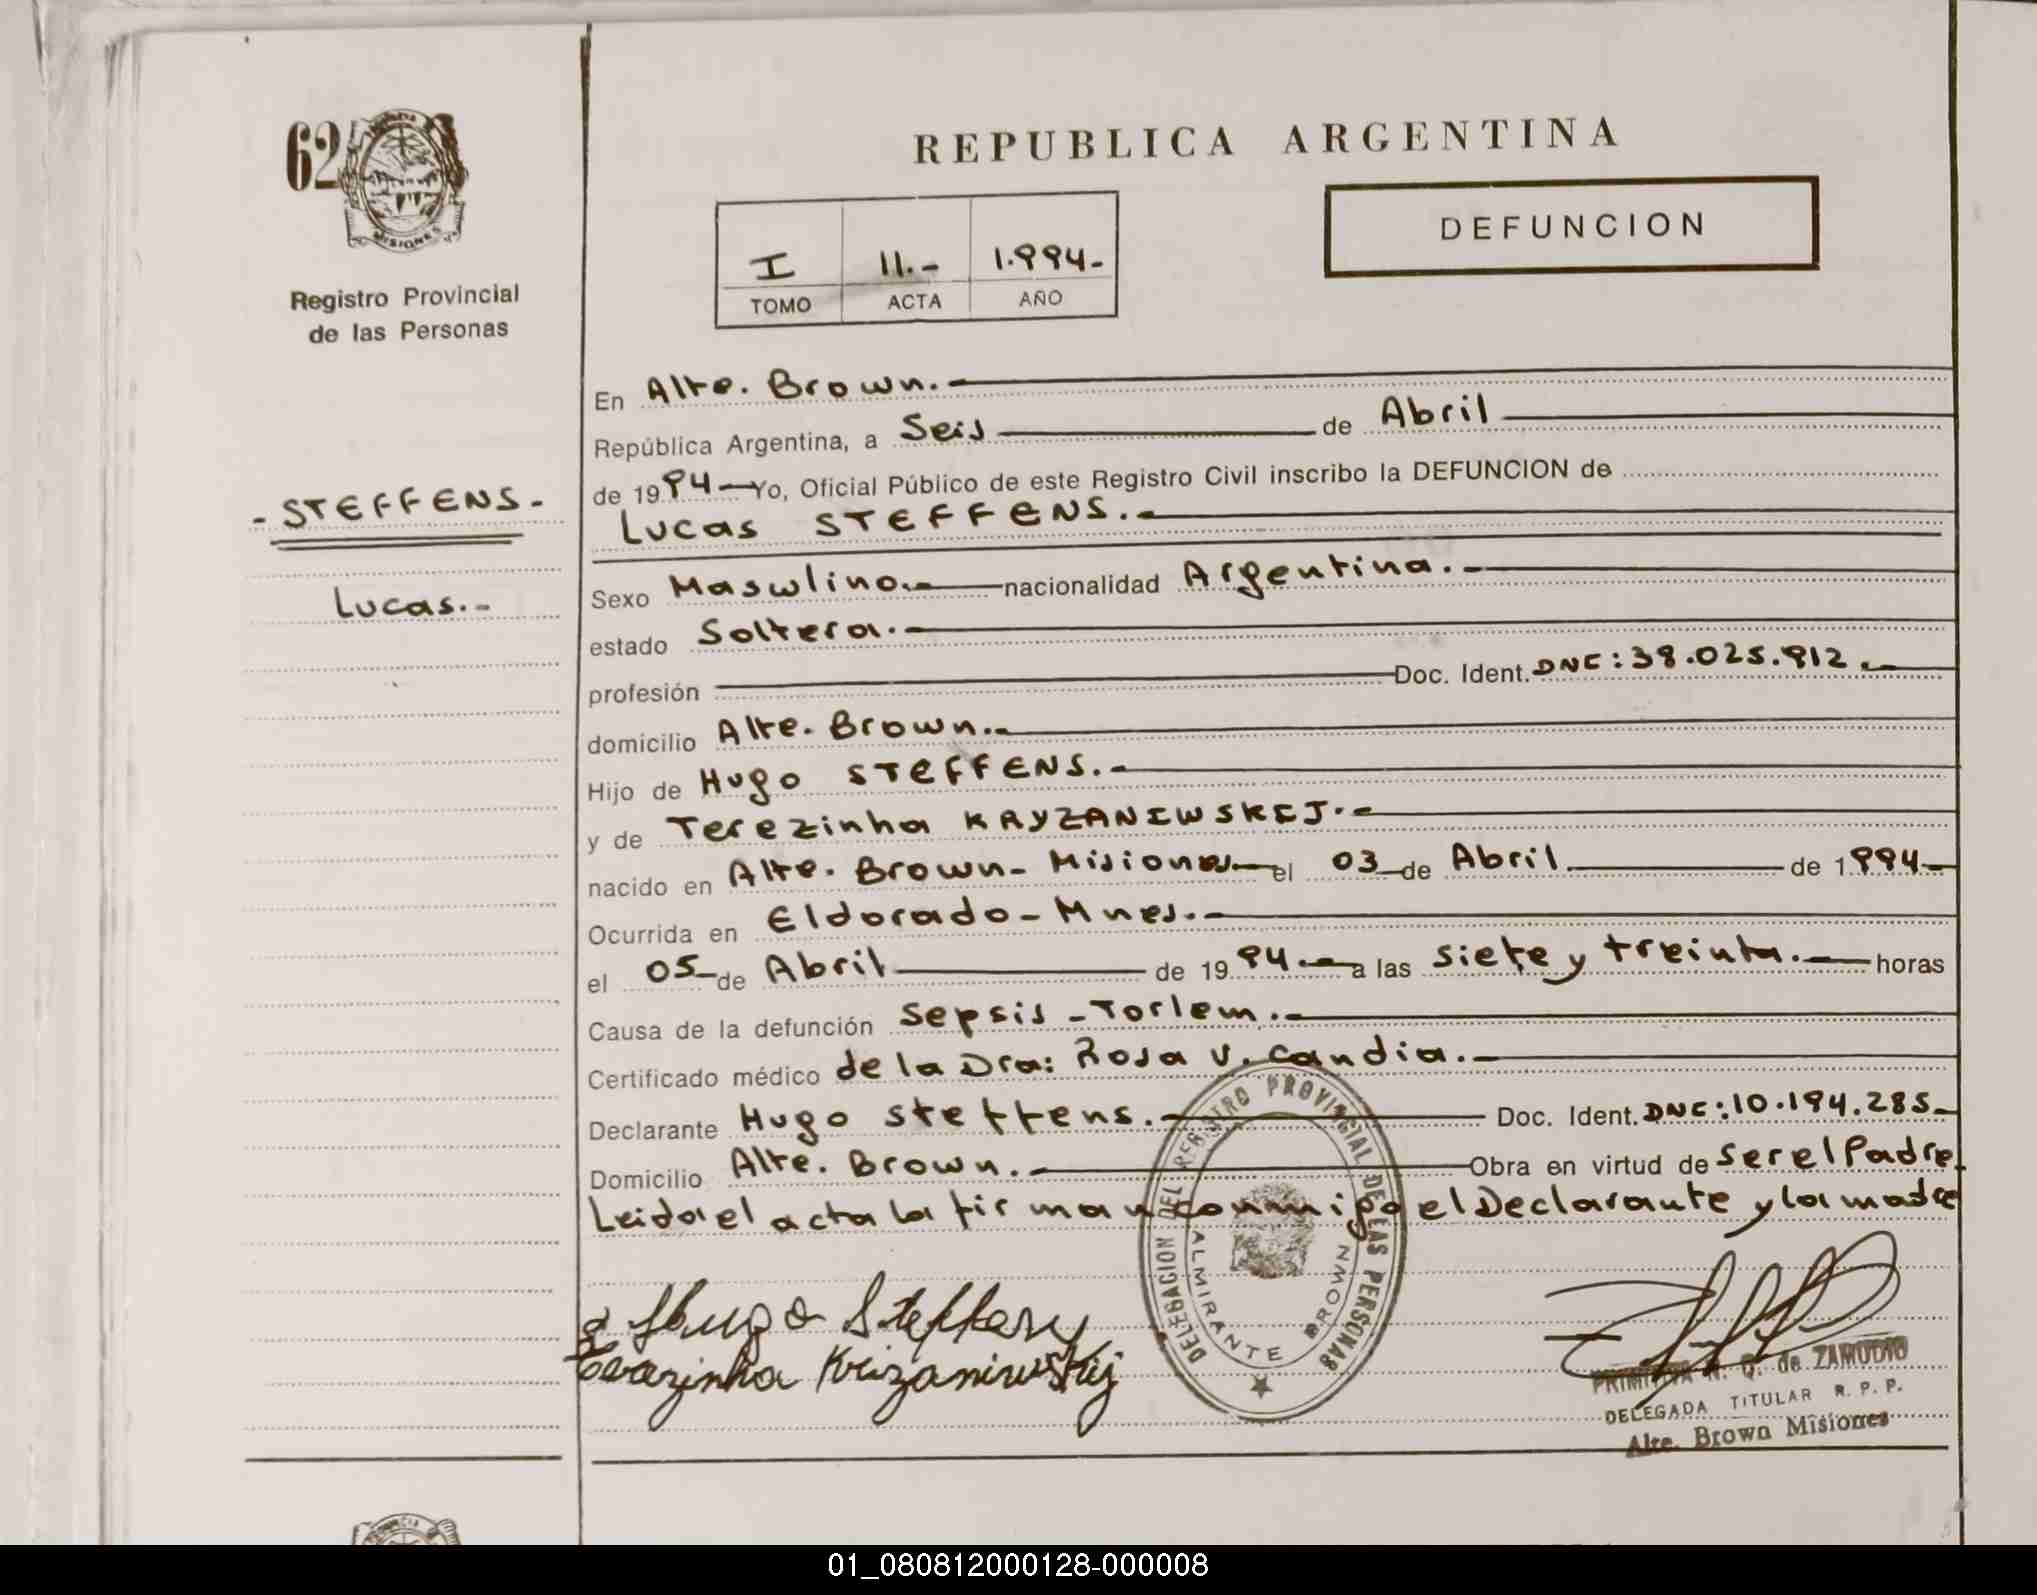 62
MISIONES
Registro Provincial
de las Personas
- STEFFENS -
Lucas.-
REPUBLICA ARGENTINA
I 11.- 1.994-
TOMO ACTA AÑO
DEFUNCION
En Alte. Brown.-
República Argentina, a Seis de Abril
de 1994 Yo, Oficial Público de este Registro Civil inscribo la DEFUNCION de
Lucas STEFFENS.-
Sexo Masculino.- nacionalidad Argentina.-
estado Soltera.-
profesión Doc. Ident. DNI: 38.025.912.-
domicilio Alte. Brown.-
Hijo de Hugo STEFFENS.-
y de Terezinha KRYZANIWSKIJ.-
nacido en Alte. Brown - Misiones el 03 de Abril de 1994-
Ocurrida en Eldorado - Mnes.-
el 05 de Abril de 1994.- a las siete y treinta.- horas
Causa de la defunción Sepsis - Torlem.-
Certificado médico de la Dra: Rosa V. Candia.-
Declarante Hugo Steffens.- Doc. Ident. DNI: 10.194.285-
Domicilio Alte. Brown.- Obra en virtud de ser el Padre
Leida el acta la firman conmigo el Declarante y la madre
Hugo Steffens
Terezinha Krizaniwskij
DELEGACION DEL REGISTRO PROVINCIAL DE LAS PERSONAS
ALMIRANTE BROWN
PRIMITIVA N. Q. de ZAMUDIO
DELEGADA TITULAR R. P. P.
Alte. Brown Misiones
01_080812000128-000008